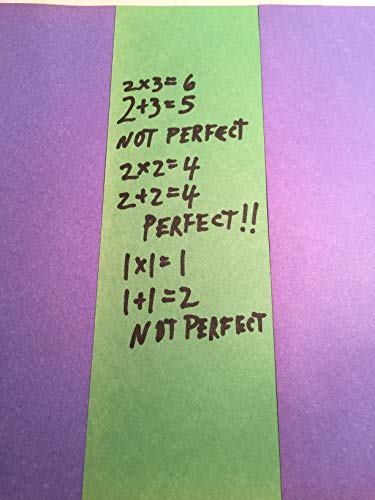 2x3=6
2+3=5
NOT PERFECT
2x2=4
2+2=4
PERFECT!!
1x1=1
1+1=2
NOT PERFECT